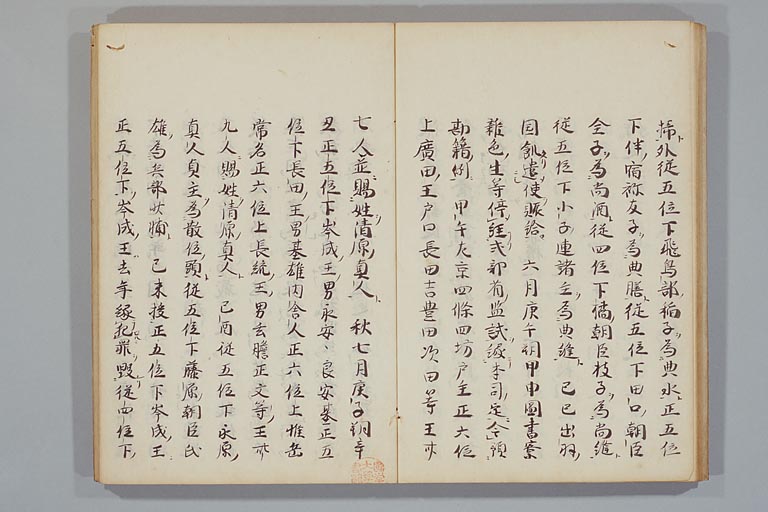 掃外從五位下飛鳥部稲子爲典水正五位
下伴宿祢友子爲典膳從五位下田口朝臣
全子爲尚酒從四位下橘朝臣枝子爲尚縫
從五位下小子連諸主爲典縫 己巳出羽
国飢遣使賑給 六月庚午朔甲申圖書寮
雜色生等停経式部省並試縁本司定令預
勘籍例 甲午左京四條四坊戸主正六位
上廣田王戸口長田吉豊田次田等王亦
七人並賜姓清原真人 秋七月庚子朔辛
丑正五位下岑成王男永安良安基正五
位下長田王男基雄内舎人正六位上惟岳
常名正六位上長統王男玄膽正文等王亦
九人賜姓清原真人 己酉從五位下永原
真人貞主爲散位頭從五位下藤原朝臣氏
雄爲兵部少輔 己未授正五位下岑成王
正五位下岑成王去年縁犯罪毀從四位下